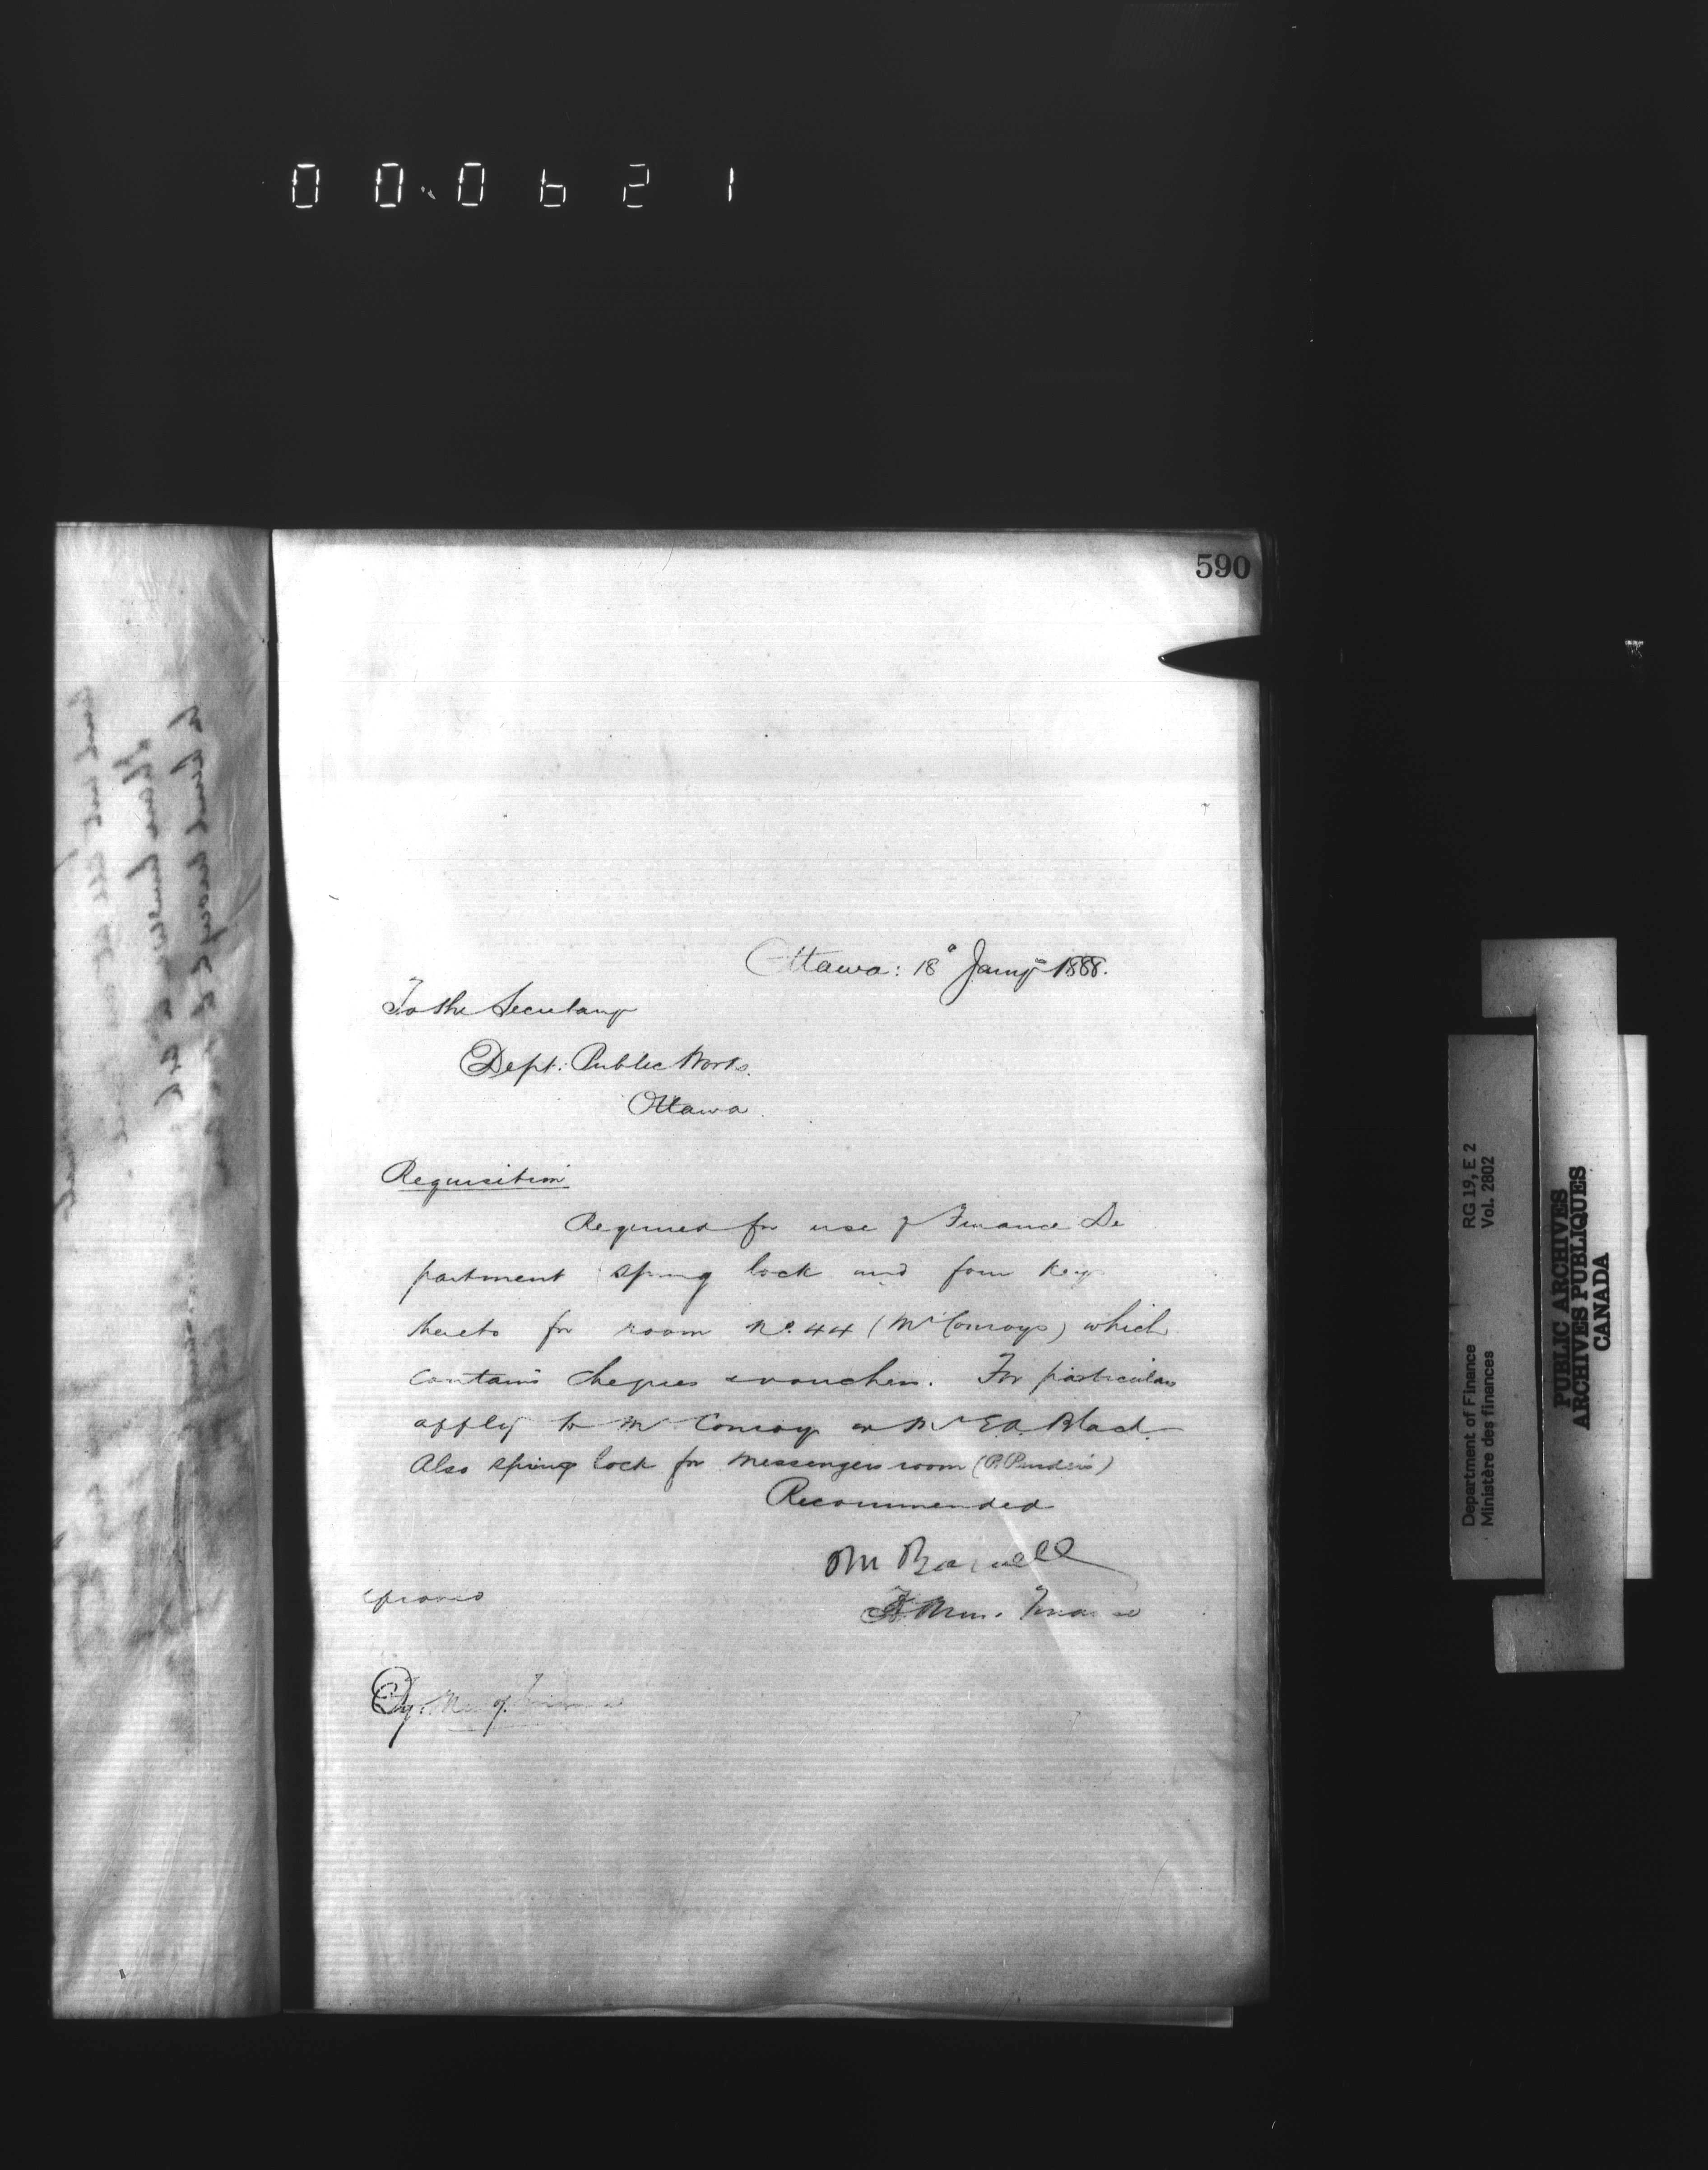 000621
590
Ottawa: 18th Jany 1888.
To the Secretary
Dept: Public Works.
Ottawa.
Requisition
Required for use of Finance De
partment spring lock and four keys
thereto for room No. 44 (Mr Conroys) which
contains cheques & vouchers. For particulars
apply to Mr Conroy or Mr E.A. Black.
Also spring lock for Messengers room (P. Purder's)
Recommended
Finance
Dy. Min of Finance
Department of Finance RG 19, E 2
Ministère des finances Vol. 2802
PUBLIC ARCHIVES
ARCHIVES PUBLIQUES
CANADA